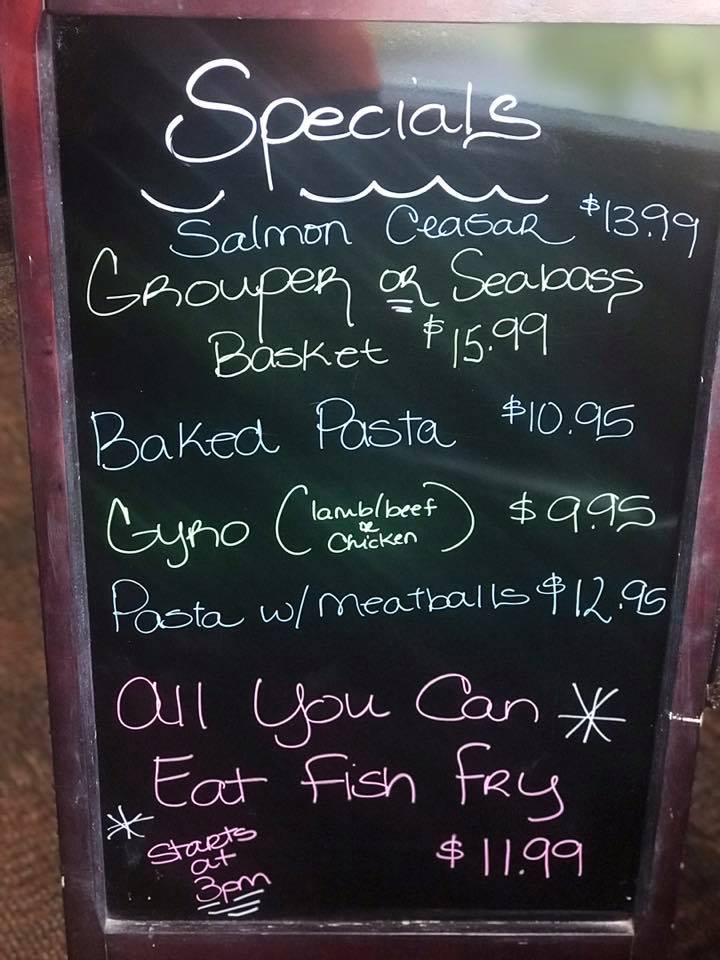 Specials
Salmon Ceasar $13.99
Grouper or Seabass
Basket $15.99
Baked Pasta $10.95
Gyro (lamb/beef or Chicken) $9.95
Pasta w/ Meatballs $12.95
All You Can *
Eat Fish Fry
* Starts
at
3pm
$11.99